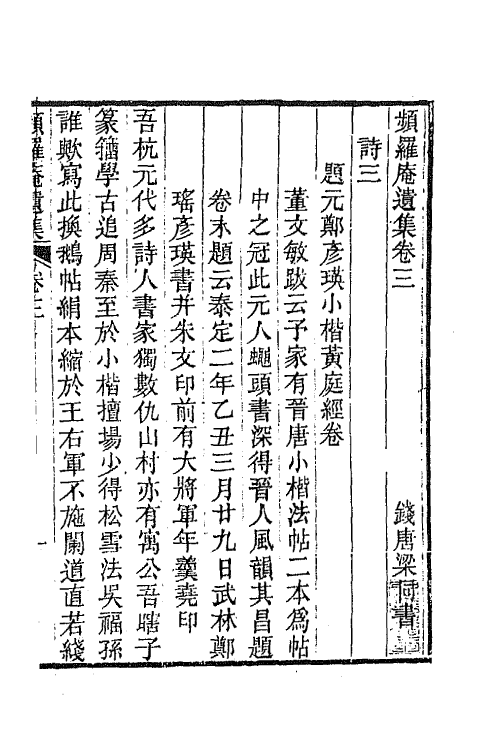 頻羅庵遺集卷三
錢唐梁同書
詩三
題元鄭彥瑛小楷黃庭經卷
董文敏跋云予家有晉唐小楷法帖二本爲帖
中之冠此元人蠅頭書深得晉人風韻其昌題
卷末題云泰定二年乙丑三月廿九日武林鄭
瑤彥瑛書并朱文印前有大將軍年羹堯印
吾杭元代多詩人書家獨數仇山村亦有寓公吾瞎子
篆籀學古追周秦至於小楷擅場少得松雪法吳福孫
誰歟寫此換鵝帖絹本縮於王右軍不施闌道直若綫
頻羅庵遺集 卷三 一